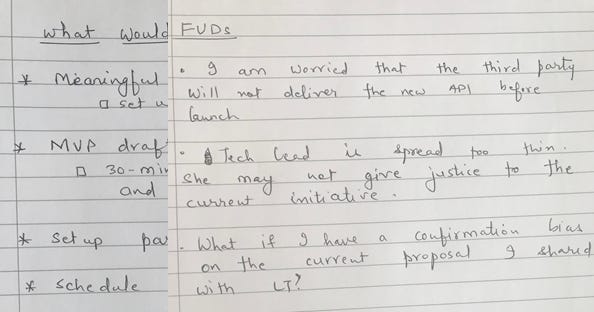 what would
* Meaningful
□ set u
* MVP draf
□ 30-min
and
* Set up pa
* Schedule
FUDs
• I am worried that the third party
will not deliver the new API before
launch
• Tech lead is spread too thin.
She may not give justice to the
current initiative.
• What if I have a confirmation bias
on the current proposal I shared
with LT?